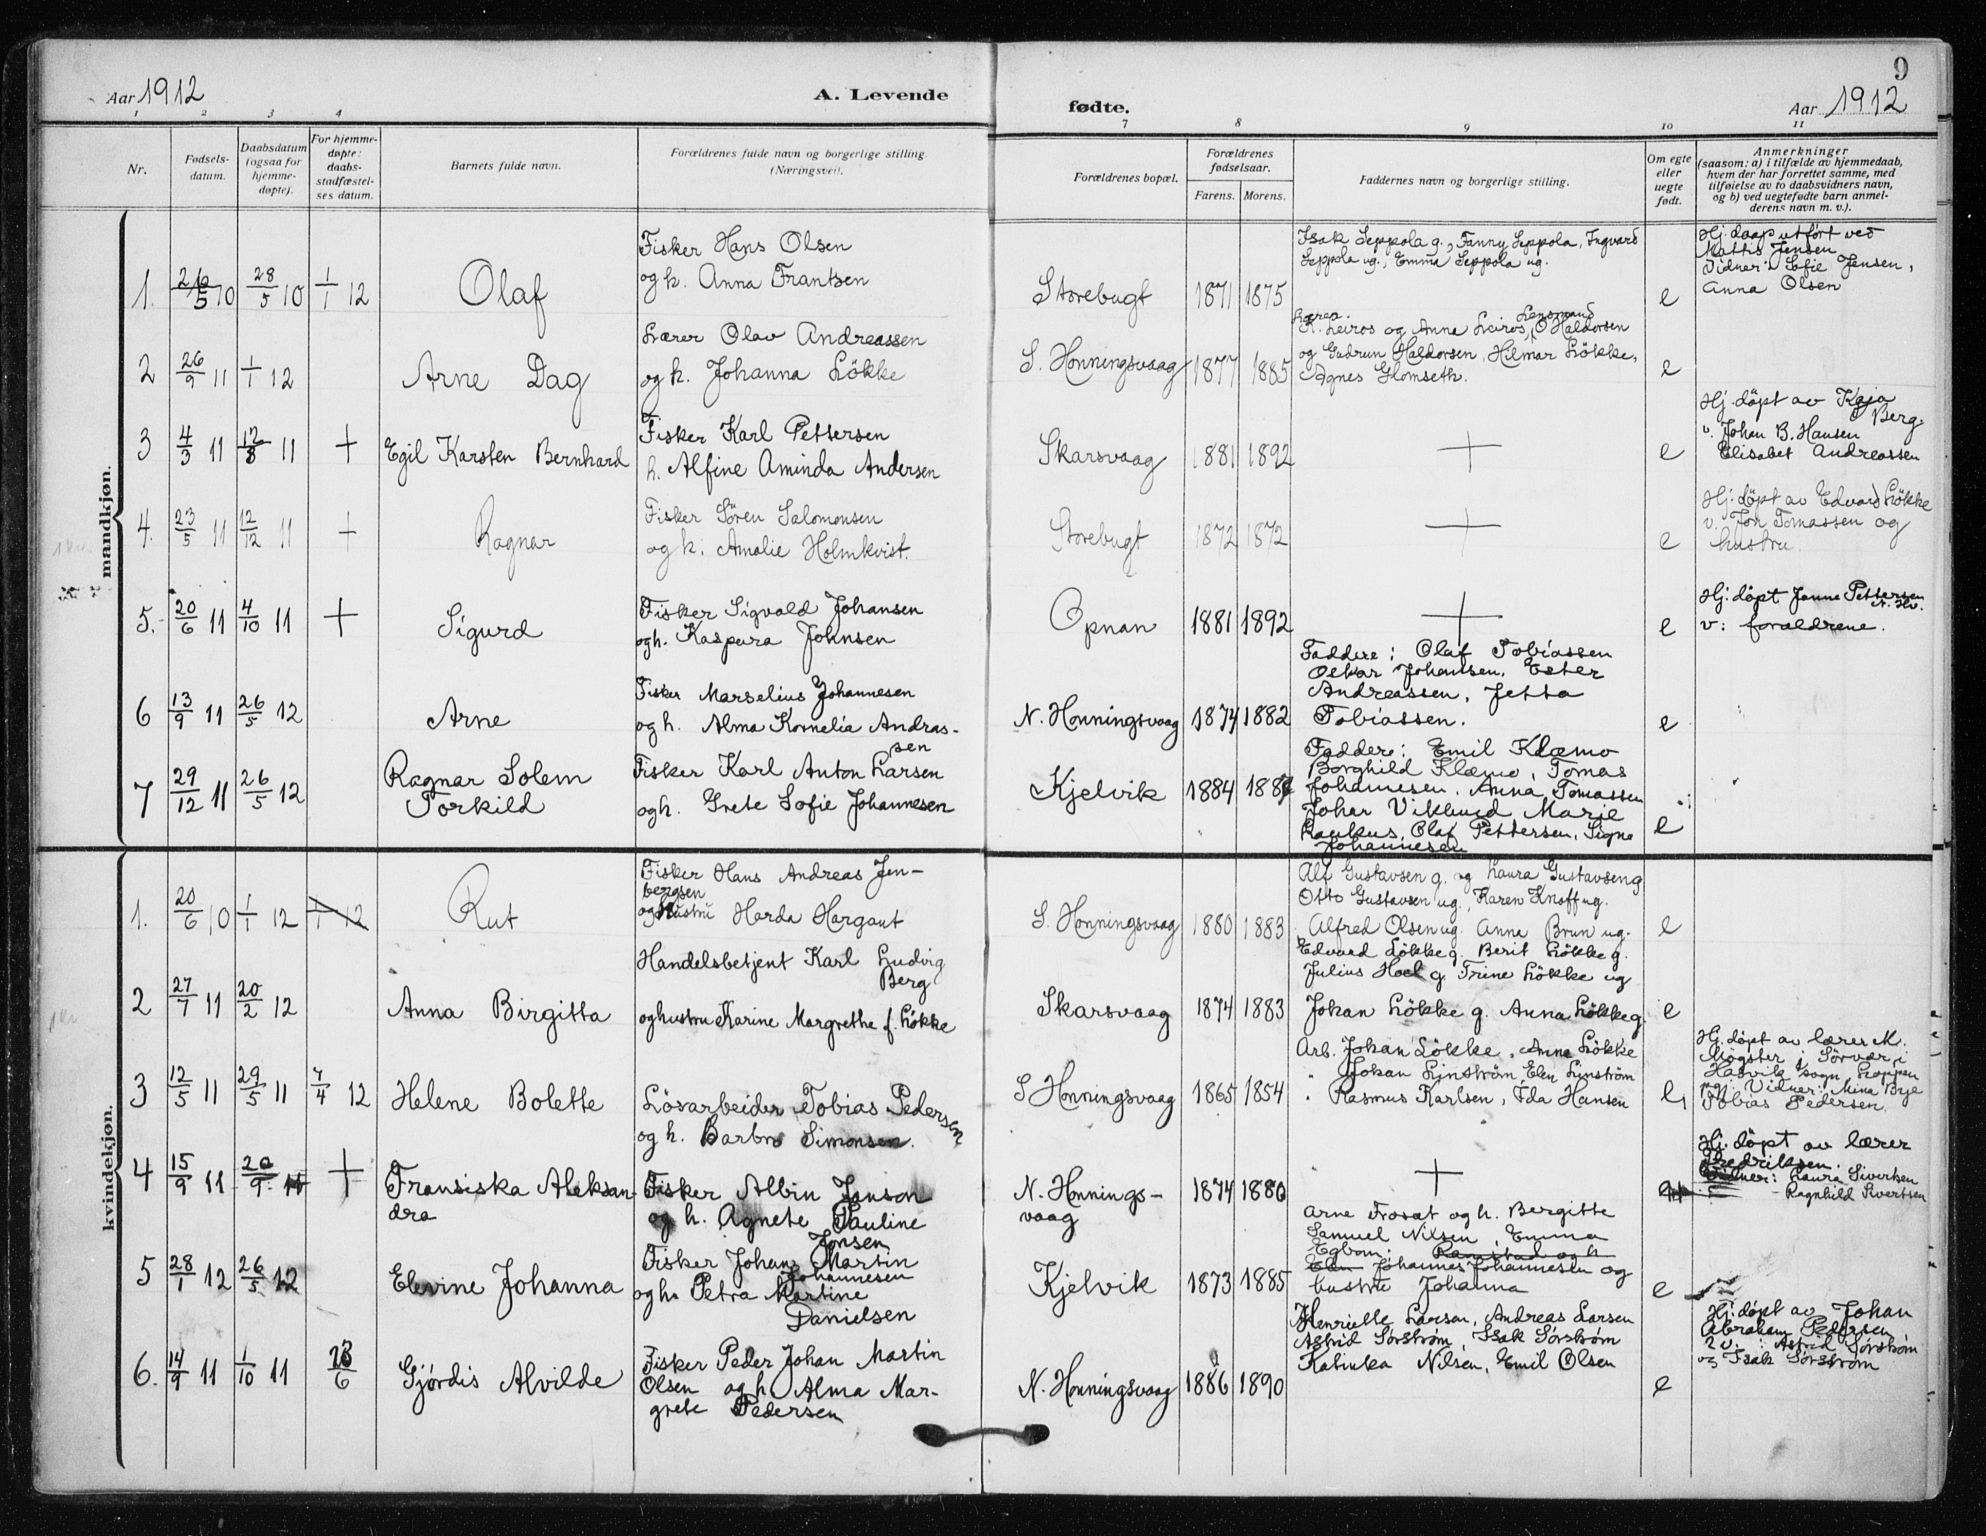 Aar 1912
A. Levende
fødte.
9
Aar 1912
1 2 3 4
7 8 9 10 11
Nr.
Fødsels-
datum.
Daabsdatum
(ogsaa for
hjemme-
døpte).
For hjemme-
døpte:
daabs-
stadfæstel-
ses datum.
Barnets fulde navn.
Forældrenes fulde navn og borgerlige stilling.
(Næringsvei).
Forældrenes bopæl.
Forældrenes
fødselsaar.
Farens. Morens.
Faddernes navn og borgerlige stilling.
Om egte
eller
uegte
født.
Anmerkninger
(saasom: a) i tilfælde av hjemmedaab,
hvem der har forrettet samme, med
tilføielse av to daabsvidners navn,
og b) ved uegtefødte barn anmel-
derens navn m. v.).
mandkjøn.
1. 26/5 10 28/5 10 1/1 12 Olaf
Fisker Hans Olsen
og h. Anna Frantsen
Storebugt 1871 1875
Isak Seppola g., Fanny Seppola, Ingvard
Seppola ug., Emma Seppola ug.
e
Hj. daap utført ved
Mattis Jensen
Vidner: Sofie Jensen,
Anna Olsen
2 26/9 11 1/1 12 Arne Dag
Lærer Olav Andreassen
og h. Johanna Løkke
S. Honningsvaag 1877 1885
Lensmand
K. Leiros og Anna Leiros, O Haldorsen
og Gudrun Haldorsen, Hilmar Løkke,
Agnes Glomseth.
e
3 4/3 11 12/8 11 + Egil Karsten Bernhard
Fisker Karl Pettersen
h. Alfine Aminda Andersen
Skarsvaag 1881 1892 + e
Hj. døpt av Kaja
Berg.
v. Johan B. Hansen
Elisabet Andreassen
4. 23/5 11 12/12 11 + Ragnar
Fisker Søren Salomonsen
og h. Amalie Holmkvist.
Storebugt 1872 1872 + e
Hj. døpt av Edvard Løkke
v. Jon Tomassen og
hustru.
5. 20/6 11 4/10 11 + Sigurd
Fisker Sigvald Johansen
og h. Kaspara Johnsen
Opnan 1881 1892 + e
Hj. døpt Janne Pettersen
N. Hv.
v: forældrene.
6 13/9 11 26/5 12 Arne
Fisker Marselius Johannesen
og h. Alma Kornelia Andras-
sen
N. Honningsvaag 1874 1882
Faddere: Olaf Tobiassen
Oskar Johansen, Ester
Andreassen, Jetta
Tobiassen.
e
7 29/12 11 26/5 12 Ragnar Solem
Torkild
Fisker Karl Anton Larsen
og h. Grete Sofie Johannesen
Kjelvik 1884
Faddere: Emil Klæmo
Borghild Klæmo, Tomas
Johannesen, Anna Tomassen
Johan Viklund Marie
Laukus, Olaf Pettersen, Signe
Johannesen
e
kvindekjøn.
1. 20/6 10 1/1 12 1/1 12 Rut
Fisker Hans Andreas Jen-
bergsen
og Hustru Harda Hargaut
S. Honningsvaag 1880 1883
Alf Gustavsen g. og Laura Gustavsen g
Otto Gustavsen ug., Karen Knoff ug.
Alfred Olsen ug. Anna Brun ug.
e
2 27/7 11 20/2 12 Anna Birgitta
Handelsbetjent Karl Ludvig
Berg
og hustru Karine Margrethe f. Løkke
Skarsvaag 1874 1883
Edvard Løkke g. Berit Løkke g.
Julius Hoel g Trine Løkke ug
Johan Løkke g. Anna Løkke g.
e
3 12/5 11 29/5 11 7/4 12 Helene Bolette
Løsarbeider Tobias Pedersen
og h. Barbro Simonsen.
S Honningsvaag 1865 1854
Arb. Johan Løkke, Anna Løkke
" Johan Linstrøm, Elen Linstrøm
" Rasmus Karlsen, Ida Hansen
e
Hj. døpt av lærer M.
Møgster i Sørvær i
Hasvik sogn Loppen
pgj. Vidner: Mina Brje
Tobias Pedersen.
4 15/9 11 20/9 11 + Fransiska Aleksan-
dra
Fisker Albin Janson
og h. Agnete Pauline
Jonsen
N. Honnings-
vaag
1874 1880 +
Hj. døpt av lærer
Fredriksen.
Vidner: Laura Siversen
Ragnhild Sivertsen
5 28/1 12 26/5 12 Elevine Johanna
Fisker Johans Martin
Johannesen
og h. Petra Martine
Danielsen
Kjelvik 1873 1885
Arne Frosat og h. Bergitte
Samuel Nilsen, Emma
Egbom. Ramstad og h
Elen Johannes Johannesen og
hustru Johanna
e
6. 14/9 11 1/10 11 Gjørdis Alvilde
Fisker Peder Johan Martin
Olsen og h. Alma Mar-
grete Pedersen
N. Honningsvaag 1886 1890
Henriette Larsen, Andreas Larsen
Astrid Sørstrøm, Isak Sørstrøm
Katinka Nilsen, Emil Olsen
e
Hj. døpt av Johan
Abraham Pedersen
2 v.: Astrid Sørstrøm
og Isak Sørstrøm